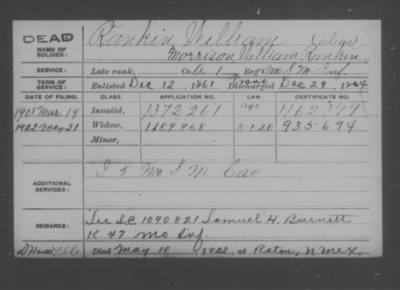 DEAD
NAME OF SOLDIER:
Rankin, William (alias)
Morrison, William Rankin
SERVICE:
Late rank, Co. 1 Reg't Mo. S. M. Inf.
TERM OF SERVICE:
Enlisted Dec 12, 1861 Discharged Dec 29, 1864
DATE OF FILING. CLASS. APPLICATION NO. LAW. CERTIFICATE NO.
1908 Mar. 19 Invalid, 1372261 age
1922 May 31 Widow, 1189968 5-1-20 935-694
Minor,
ADDITIONAL SERVICES:
I 5 Mo S M. Cav
REMARKS:
See S.C. 1090821 Samuel H. Barnett
K 47 Mo Inf.
Died May 10 1922, at Raton, N Mex.